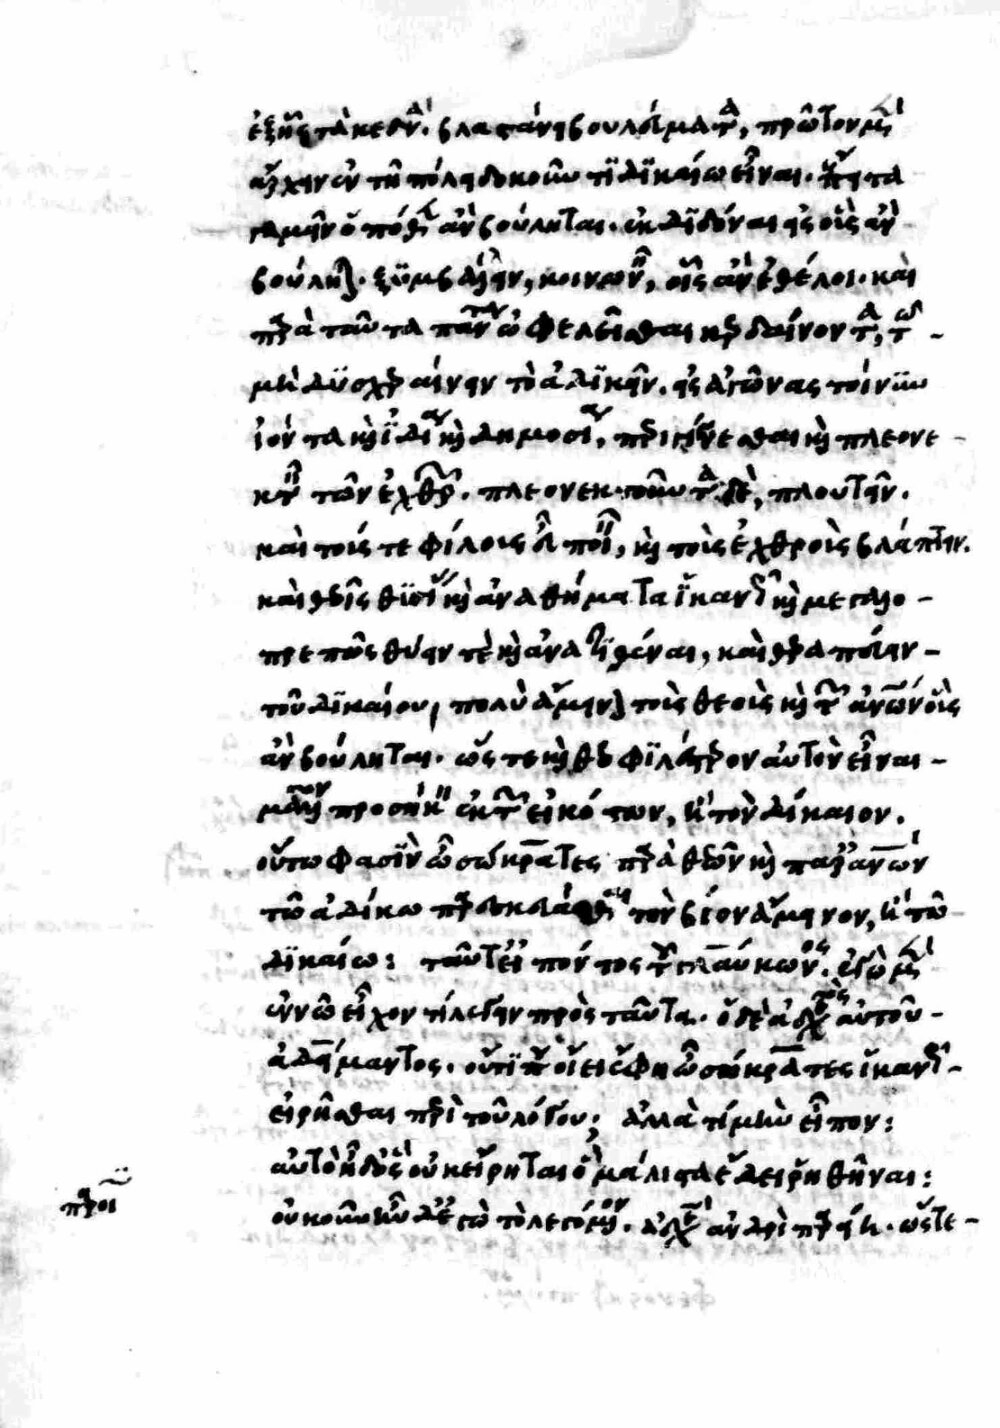 ἐξ ἧς τὰ κεδνὰ. βλαστάνει βουλεύματα, πρῶτον μὲν
ἄρχειν ἐν τῆ πόλει δοκοῦντι δϊκαίω εἶναι. ἔπειτα
γαμεῖν ὁπόθεν ἂν βούληται. ἐκδϊδόναι εἰς οὓς ἂν
βούληται. ξϋμβάλλειν, κοινωνεῖν, οἷς ἂν ἐθέλοι. καὶ
παρὰ ταῦτα πάντα ὠφελεῖσθαι κερδαίνοντα, τῶ
μὴ δϋσχεραίνειν τὸ ἀδϊκεῖν. εἰς ἀγῶνας τοίνϋν
ἰόντα καὶ ἰδία καὶ δημοσία, περιγίγνεσθαι καὶ πλεονε
κτεῖν τῶν ἐχθρῶν. πλεονεκτοῦντα δὲ, πλουτεῖν.
καὶ τούς τε φίλους εὖ ποιεῖν, καὶ τοὺς ἐχθροὺς βλάπτειν.
καὶ θεοῖς θϋσίας καὶ ἀναθήματα ἱκανῶς καὶ μεγαλο
πρεπῶς θύειν τὲ καὶ ἀνατϊθέναι, καὶ θεραπεύειν
τοῦ δϊκαίου, πολὺ ἄμεινον τοὺς θεοὺς καὶ τῶν ἀνθρώπων οὓς
ἂν βούληται. ὥς τε καὶ θεοφϊλέστερον αὐτὸν εἶναι
μᾶλλον προσήκειν ἐκ τῶν εἰκότων, ἢ τὸν δίκαιον.
οὕτω φασὶν ὦ σώκρατες παρὰ θεῶν καὶ παρ' ἀνθρώπων
τῶ ἀδίκω παρεσκευάσθαι τὸν βίον ἄμεινον, ἢ τῶ
δϊκαίω: ταῦτ' εἰπόντος τοῦ γλαύκωνος. ἐγὼ μὲν
ἐν νῶ εἶχον τί λέγειν πρὸς ταῦτα. ὁ δὲ ἀδελφὸς αὐτοῦ
ἀδείμαντος. οὔ τί που οἴει ἔφη ὦ σώκρατες ἱκανῶς
εἰρῆσθαι περὶ τοῦ λόγου; ἀλλὰ τί μὴν εἶπον:
αὐτὸ ἦ δ' ὃς οὐκ εἴρηται ὃ μάλιστα ἔδει ῥηθῆναι:
οὐκοῦν ἦν δ' ἐγὼ τὸ λεγόμενον. ἀδελφὸς ἀνδρὶ παρείη. ὥστε